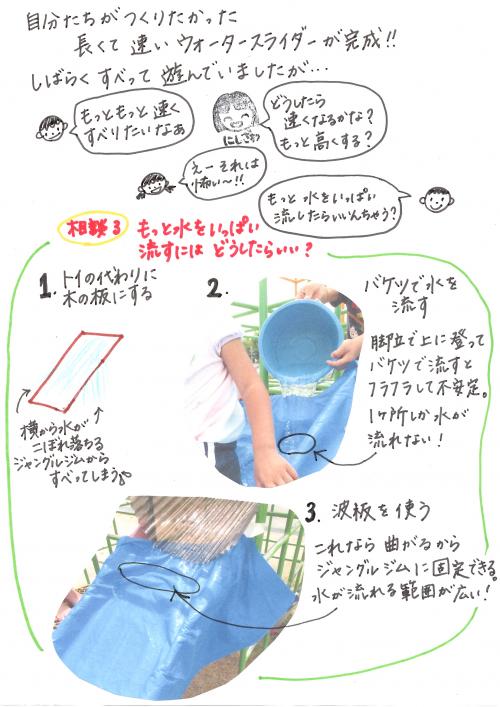 自分たちがつくりたかった
長くて速いウォータースライダーが完成!!
しばらくすべって遊んでいましたが…
もっともっと速く
すべりたいなぁ
どうしたら
速くなるかな?
もっと高くする?
にしぎぉう
えーそれは
怖い〜!!
もっと水をいっぱい
流したらいいんちゃう?
相談3 もっと水をいっぱい
流すにはどうしたらいい?
1. トイの代わりに
木の板にする
横から水が
こぼれ落ちる
ジャングルジムから
すべってしまう
2.
バケツで水を
流す
脚立で上に登って
バケツで流すと
フラフラして不安定。
1ヶ所しか水が
流れない!
3. 波板を使う
これなら曲がるから
ジャングルジムに固定できる。
水が流れる範囲が広い!